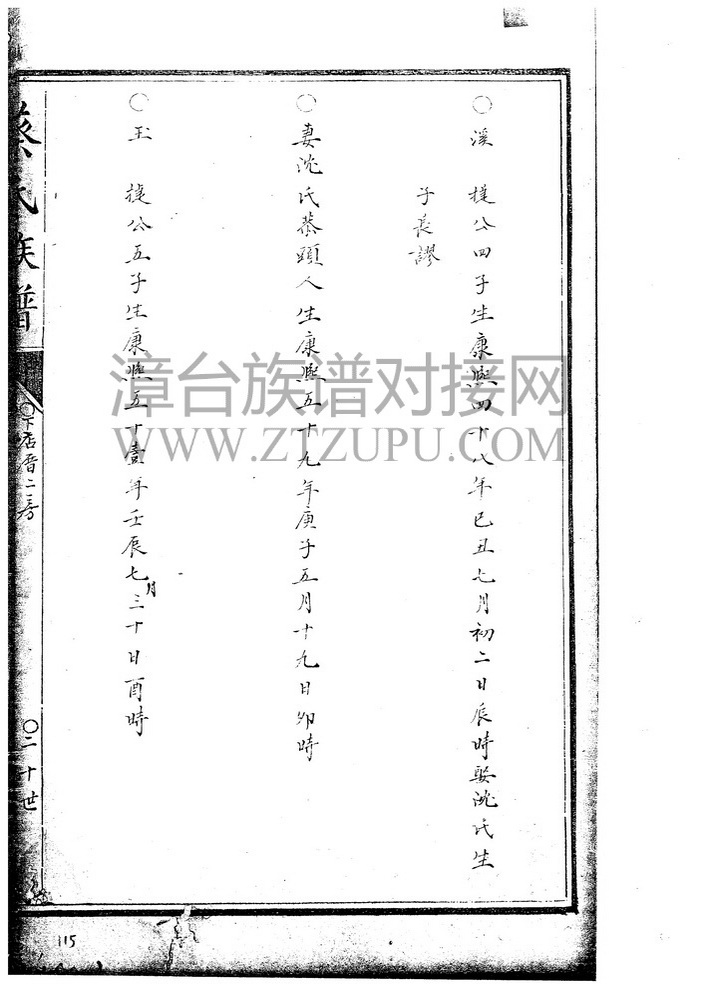 〇溪 提公四子生康熙四十八年己丑七月初二日辰時娶沈氏生
子長謬
〇妻沈氏恭頭人生康熙五十九年庚子五月十九日卯時
〇玉 提公五子生康熙五十壹年壬辰七月三十日酉時
蔡氏族譜
〇下店厝二房
〇二十世
115
漳台族谱对接网
WWW.ZTZUPU.COM